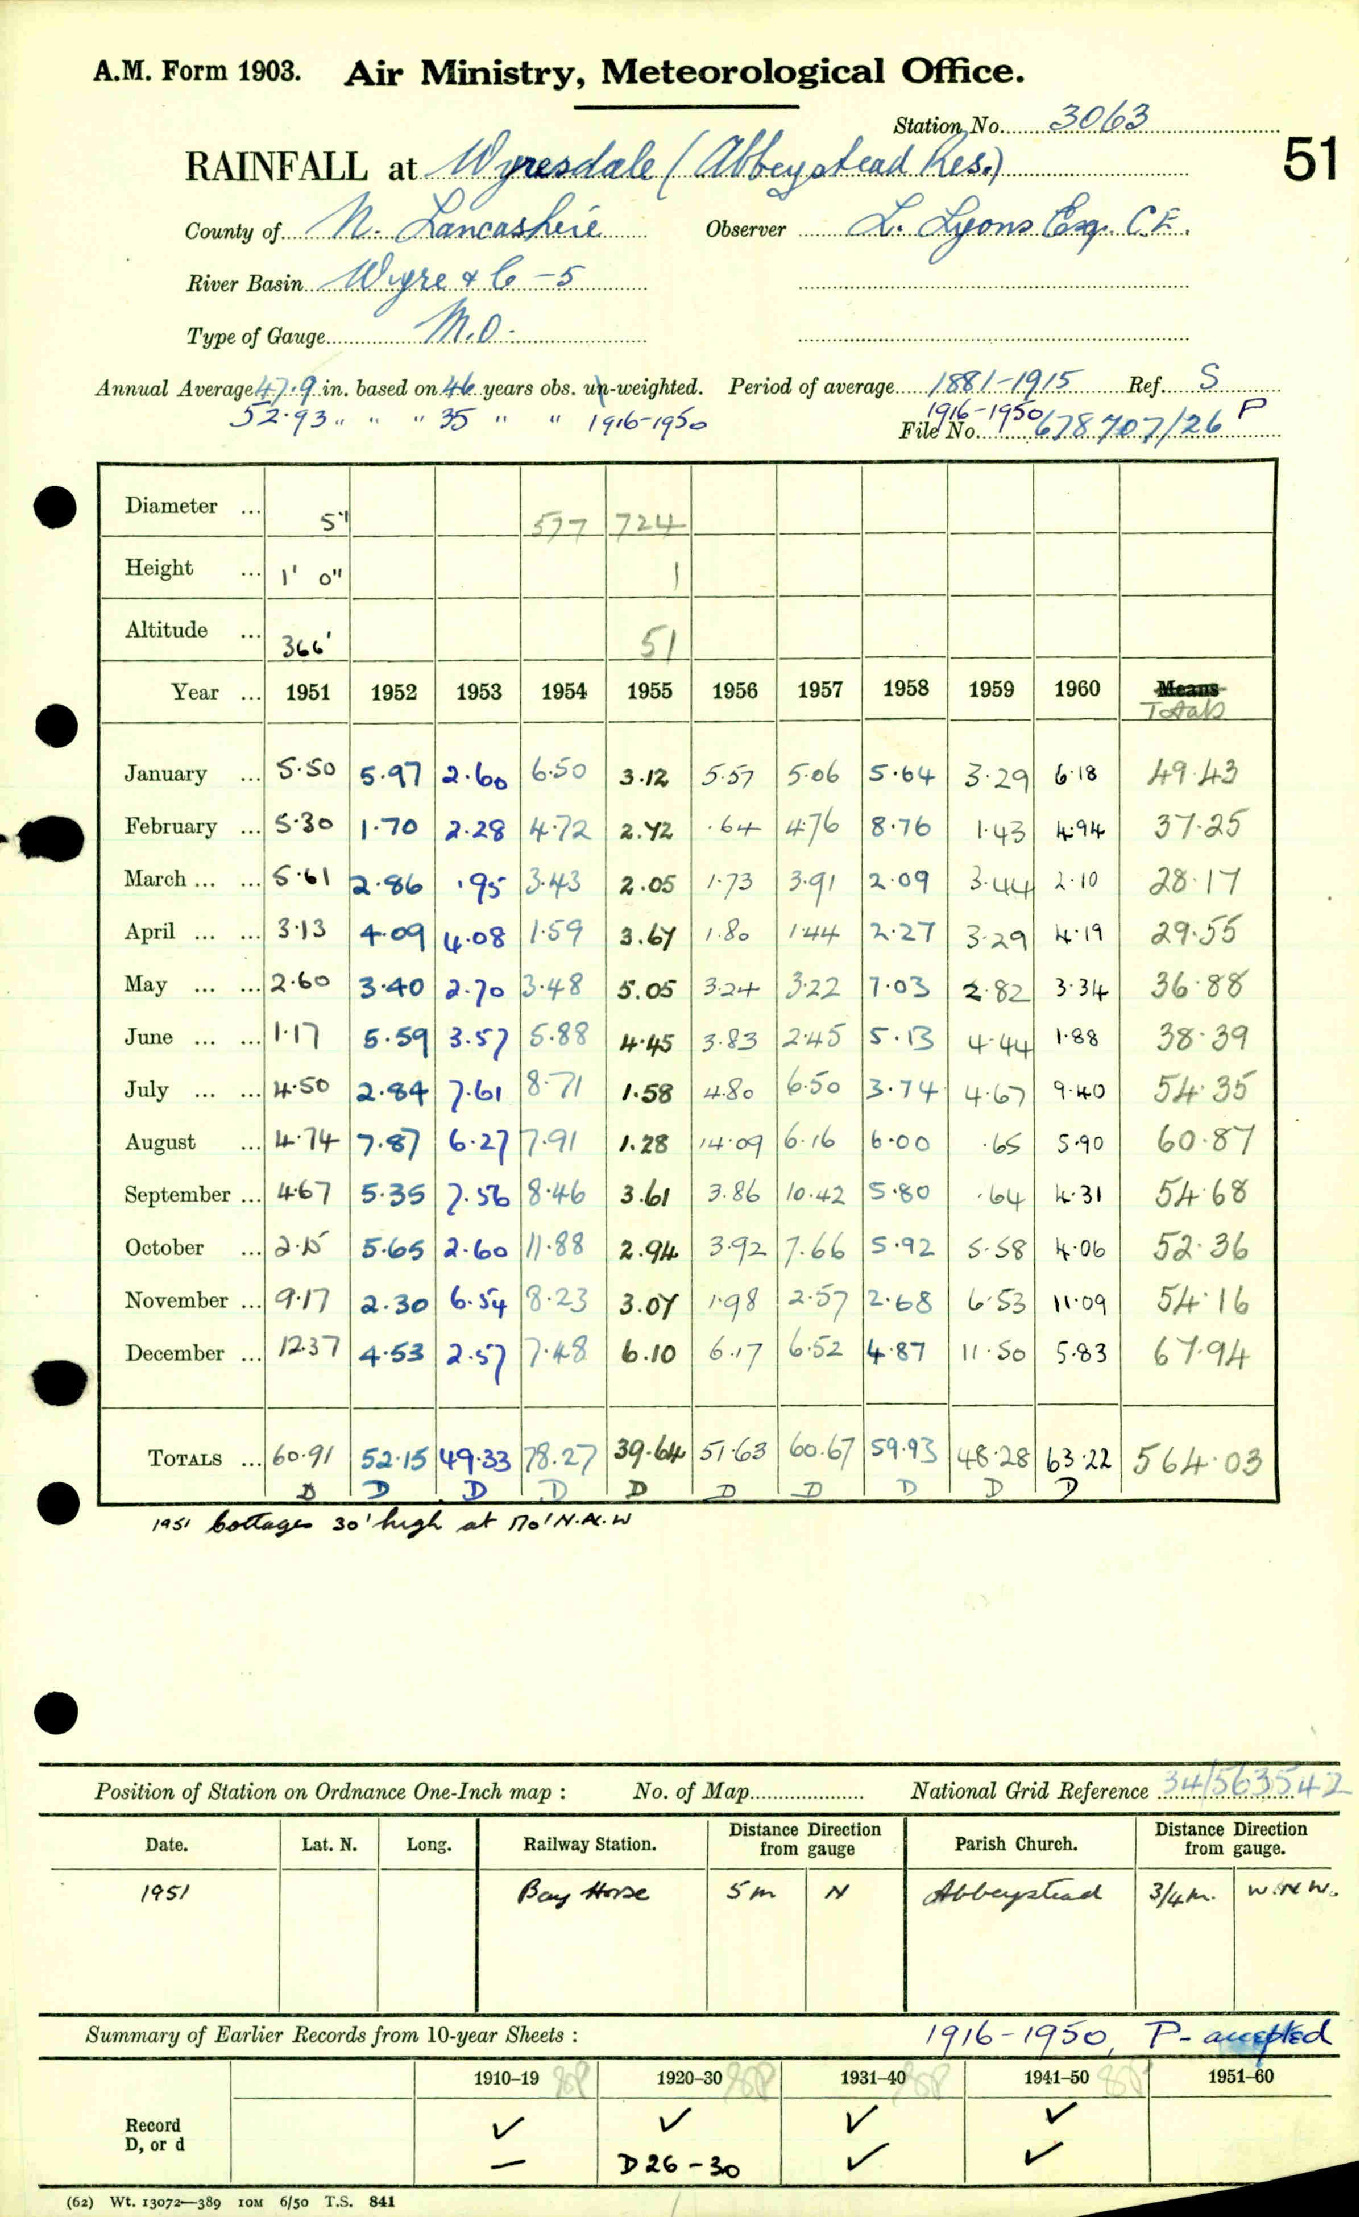 A.M. Form 1903. Air Ministry, Meteorological Office.
Station No. 3063
51
RAINFALL at Wyresdale (Abbeystead Res.)
County of N. Lancashire Observer L. Lyons Esq. C.E.
River Basin Wyre & C -5
Type of Gauge M.O.
Annual Average 47.9 in. based on 46 years obs. un-weighted. Period of average 1881-1915 Ref. S
52.93 " " " 35 " " 1916-1950 1916-1950 P
File No. 678707/26
Diameter ... 5" 577 724
Height ... 1' 0" 1
Altitude ... 366' 51
Year ... 1951 1952 1953 1954 1955 1956 1957 1958 1959 1960 Means
Totals
January ... 5.50 5.97 2.60 6.50 3.12 5.57 5.06 5.64 3.29 6.18 49.43
February ... 5.30 1.70 2.28 4.72 2.72 .64 4.76 8.76 1.43 4.94 37.25
March ... ... 5.61 2.86 .95 3.43 2.05 1.73 3.91 2.09 3.44 2.10 28.17
April ... ... 3.13 4.09 4.08 1.59 3.67 1.80 1.44 2.27 3.29 4.19 29.55
May ... ... 2.60 3.40 2.70 3.48 5.05 3.24 3.22 7.03 2.82 3.34 36.88
June ... ... 1.17 5.59 3.57 5.88 4.45 3.83 2.45 5.13 4.44 1.88 38.39
July ... ... 4.50 2.84 7.61 8.71 1.58 4.80 6.50 3.74 4.67 9.40 54.35
August ... 4.74 7.87 6.27 7.91 1.28 14.09 6.16 6.00 .65 5.90 60.87
September ... 4.67 5.35 7.56 8.46 3.61 3.86 10.42 5.80 .64 4.31 54.68
October ... 2.15 5.65 2.60 11.88 2.94 3.92 7.66 5.92 5.58 4.06 52.36
November ... 9.17 2.30 6.54 8.23 3.07 1.98 2.57 2.68 6.53 11.09 54.16
December ... 12.37 4.53 2.57 7.48 6.10 6.17 6.52 4.87 11.50 5.83 67.94
TOTALS ... 60.91 52.15 49.33 78.27 39.64 51.63 60.67 59.93 48.28 63.22 564.03
D D D D D D D D D D
1951 Cottages 30' high at 170' N.N.W
Position of Station on Ordnance One-Inch map : No. of Map National Grid Reference 34/563542
Date. Lat. N. Long. Railway Station. Distance from gauge Direction Parish Church. Distance from gauge. Direction
1951 Bay Horse 5 m N Abbeystead 3/4 m. W.N.W.
Summary of Earlier Records from 10-year Sheets : 1916-1950, P- accepted
1910-19 1920-30 1931-40 1941-50 1951-60
Record ✓ ✓ ✓ ✓
D, or d — D 26-30 ✓ ✓
(62) Wt. 13072—389 10M 6/50 T.S. 841